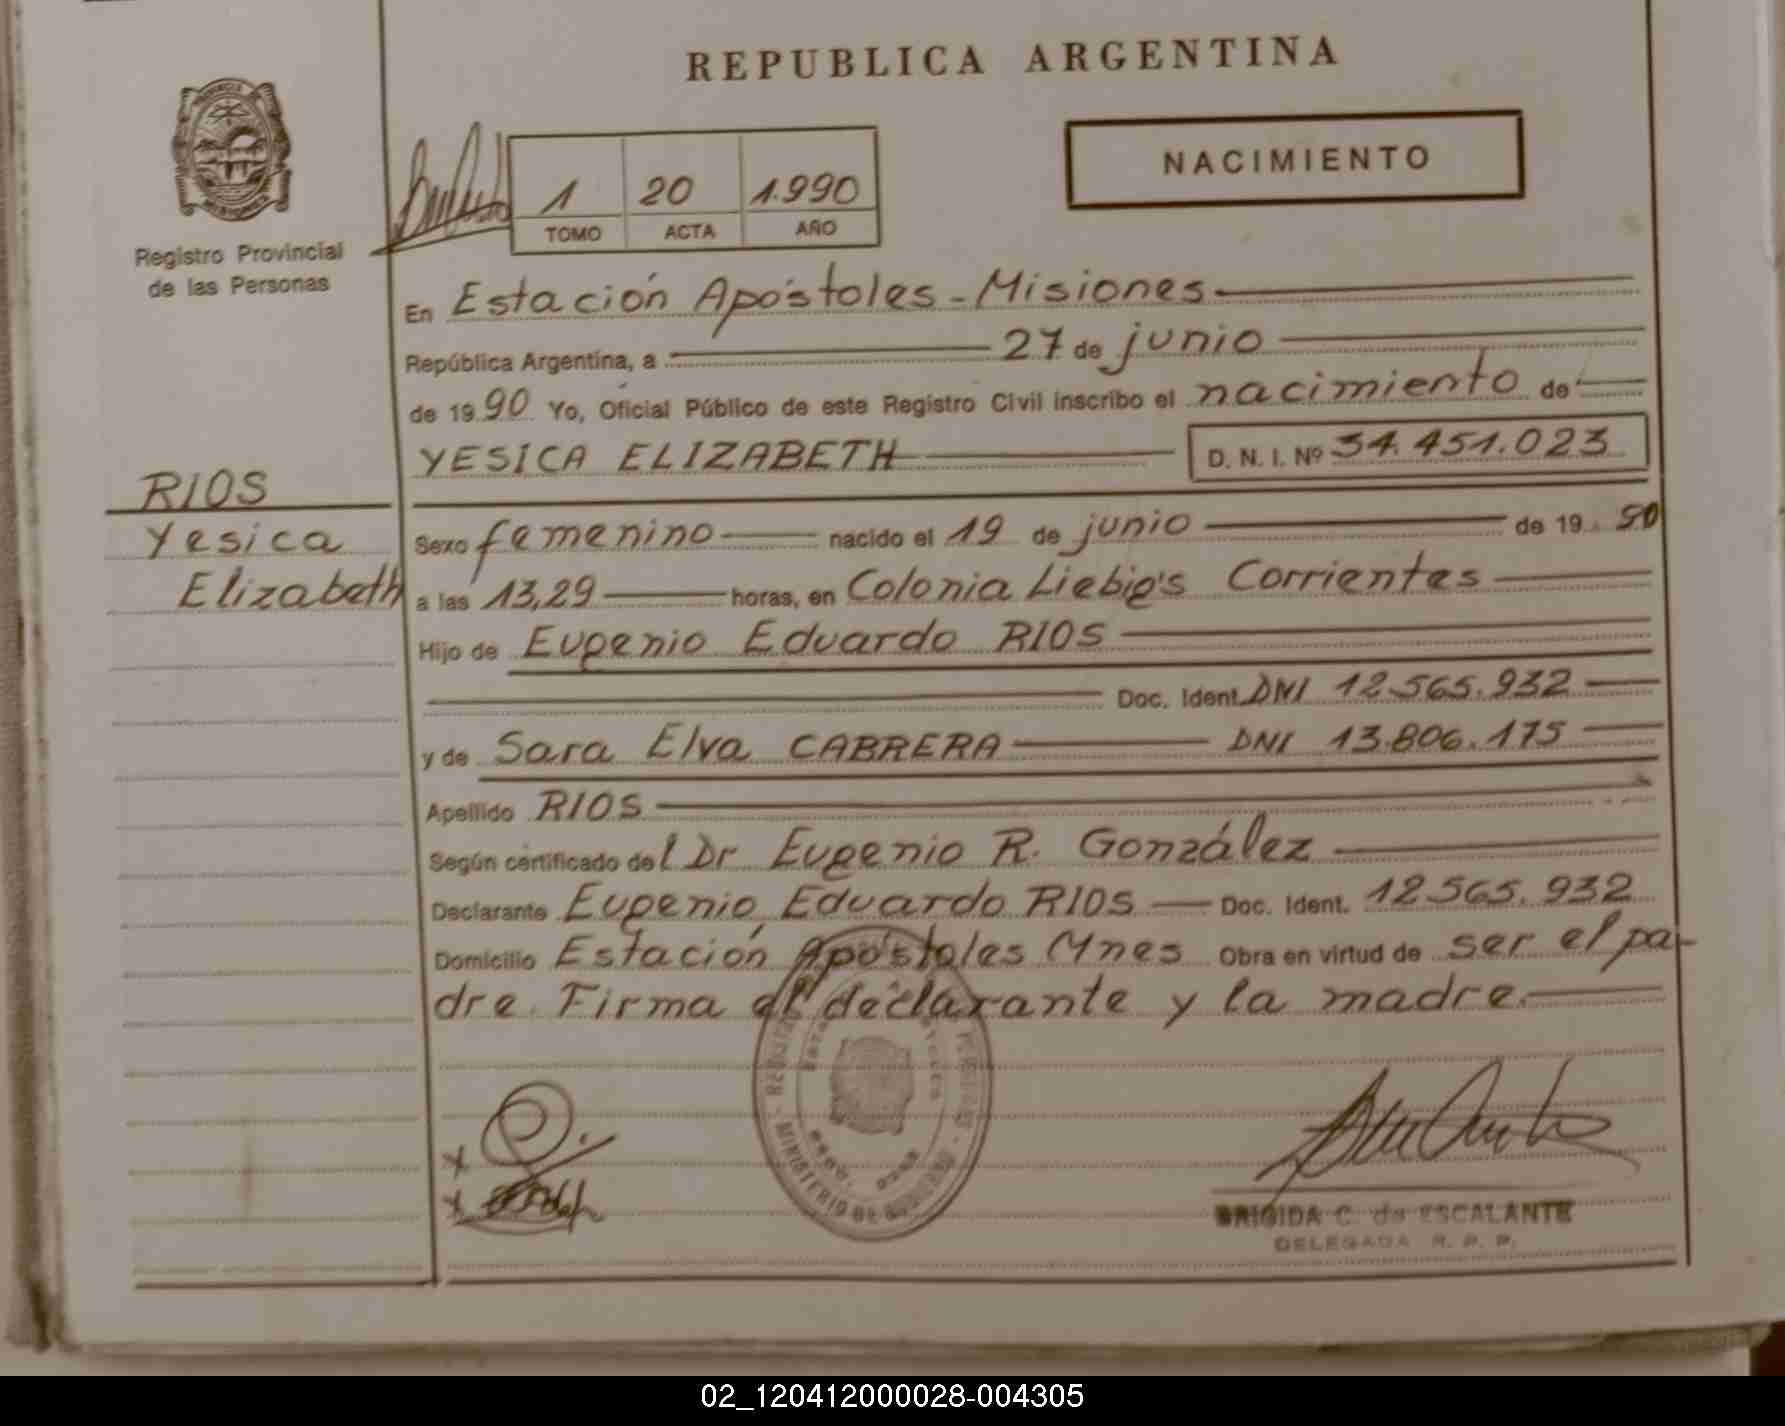 REPUBLICA ARGENTINA
NACIMIENTO
1 20 1.990
TOMO ACTA AÑO
Registro Provincial
de las Personas
En Estación Apóstoles - Misiones
República Argentina, a 27 de junio
de 19 90 Yo, Oficial Público de este Registro Civil inscribo el nacimiento de
YESICA ELIZABETH D. N. I. Nº 34.451.023
RIOS
Yesica
Elizabeth
Sexo femenino nacido el 19 de junio de 19 90
a las 13,29 horas, en Colonia Liebig's Corrientes
Hijo de Eugenio Eduardo RIOS
Doc. Ident. DNI 12.565.932
y de Sara Elva CABRERA DNI 13.806.175
Apellido RIOS
Según certificado del Dr Eugenio R. González
Declarante Eugenio Eduardo RIOS Doc. Ident. 12.565.932
Domicilio Estación Apóstoles Mnes Obra en virtud de ser el pa-
dre. Firma el declarante y la madre.
x
x
MINISTERIO DE GOBIERNO
BRIGIDA C. de ESCALANTE
DELEGADA R. P. P.
02_120412000028-004305